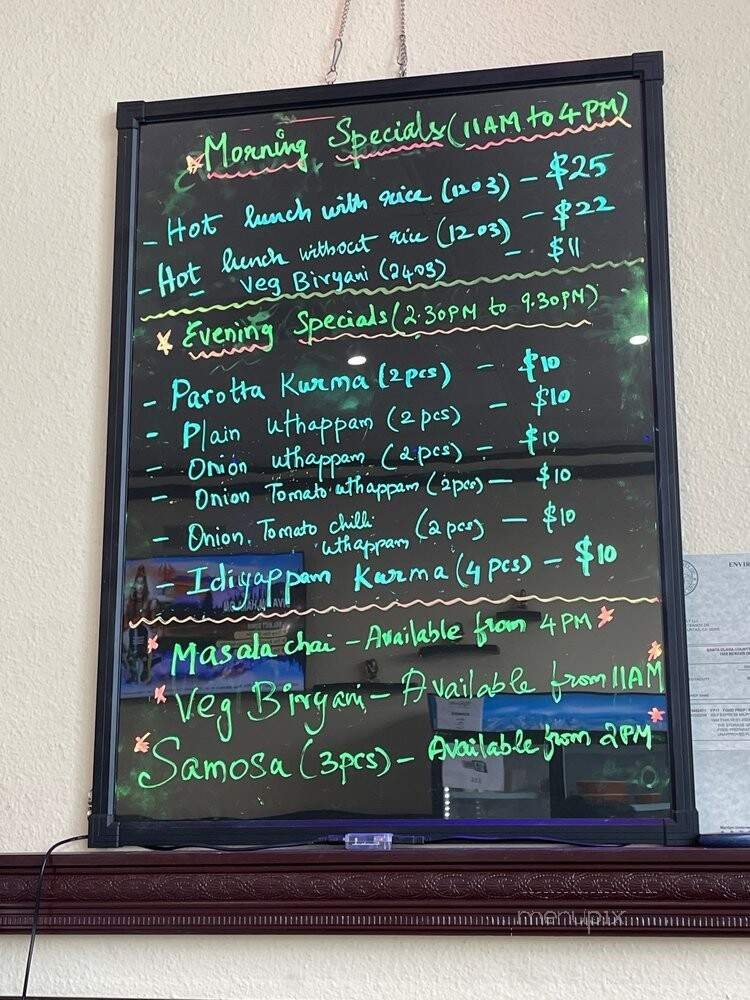 Morning Specials (11AM to 4PM)
- Hot lunch with rice (12 03) - $25
- Hot lunch without rice (12 03) - $22
Veg Biryani (24 03) - $11
Evening Specials (2.30PM to 9.30PM)
- Parotta Kurma (2pcs) - $10
- Plain uthappam (2pcs) - $10
- Onion uthappam (2pcs) - $10
- Onion Tomato uthappam (2pcs) - $10
- Onion, Tomato chilli uthappam (2pcs) - $10
- Idiyappam Kurma (4pcs) - $10
Masala chai - Available from 4PM
Veg Biryani - Available from 11AM
Samosa (3pcs) - Available from 2PM
menupix